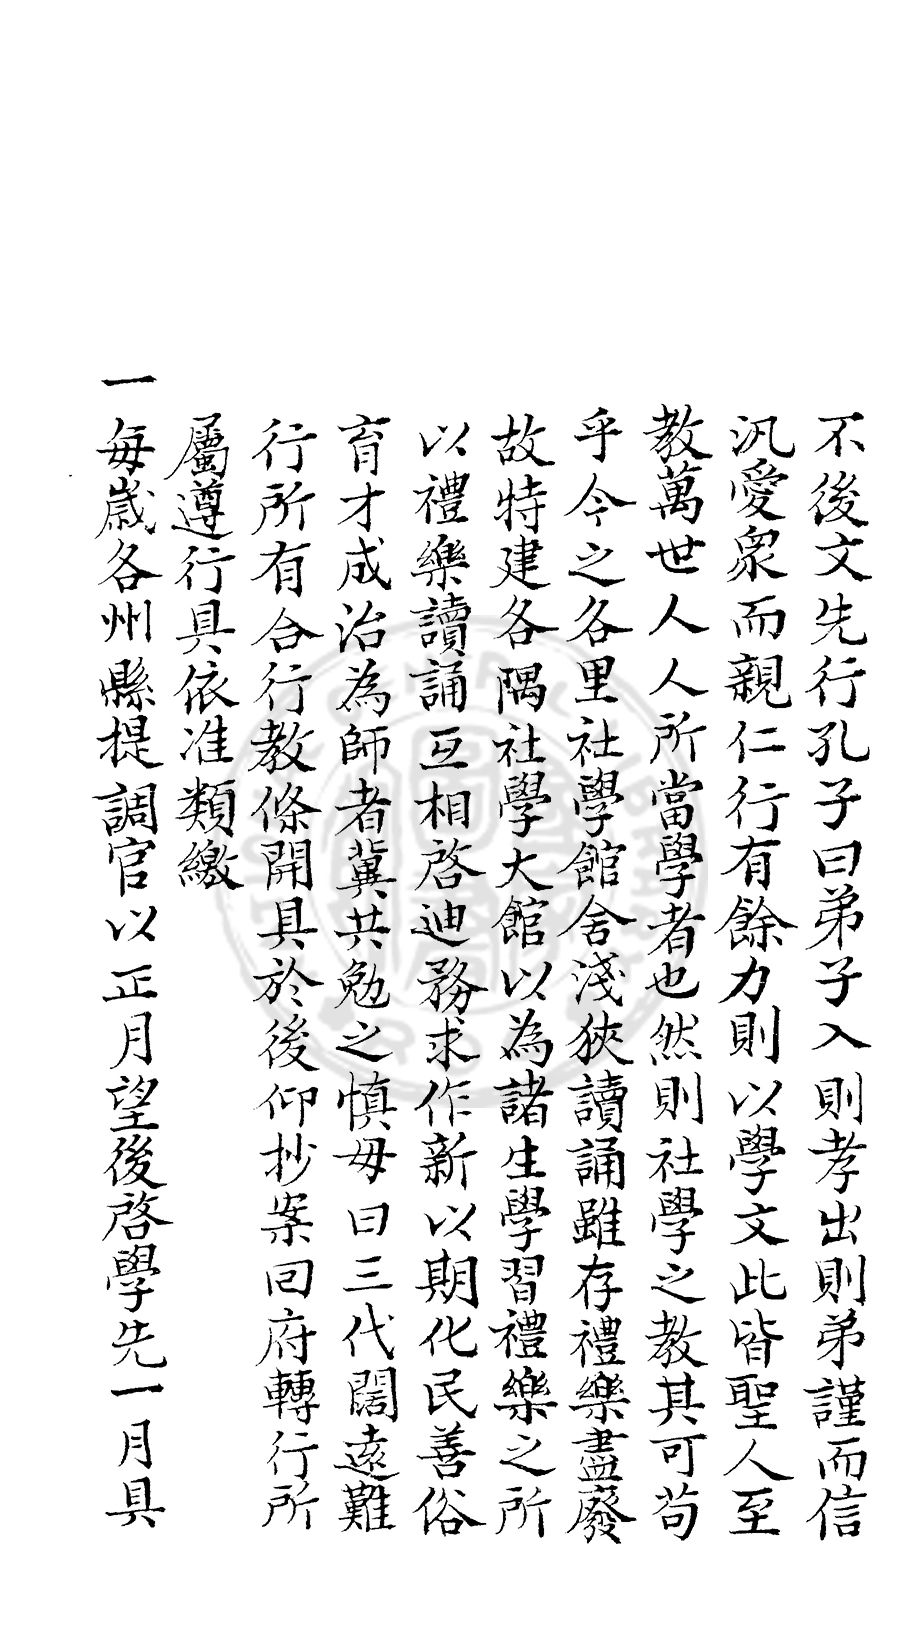 不後文先行孔子曰弟子入則孝出則弟謹而信
汎愛衆而親仁行有餘力則以學文此皆聖人至
教萬世人人所當學者也然則社學之教其可苟
乎今之各里社學館舍淺狹讀誦雖存禮樂盡廢
故特建各隅社學大館以為諸生學習禮樂之所
以禮樂讀誦互相啓迪務求作新以期化民善俗
育才成治為師者冀共勉之慎毋曰三代闊遠難
行所有合行教條開具於後仰抄案回府轉行所
屬遵行具依准類繳
一每歲各州縣提調官以正月望後啓學先一月具